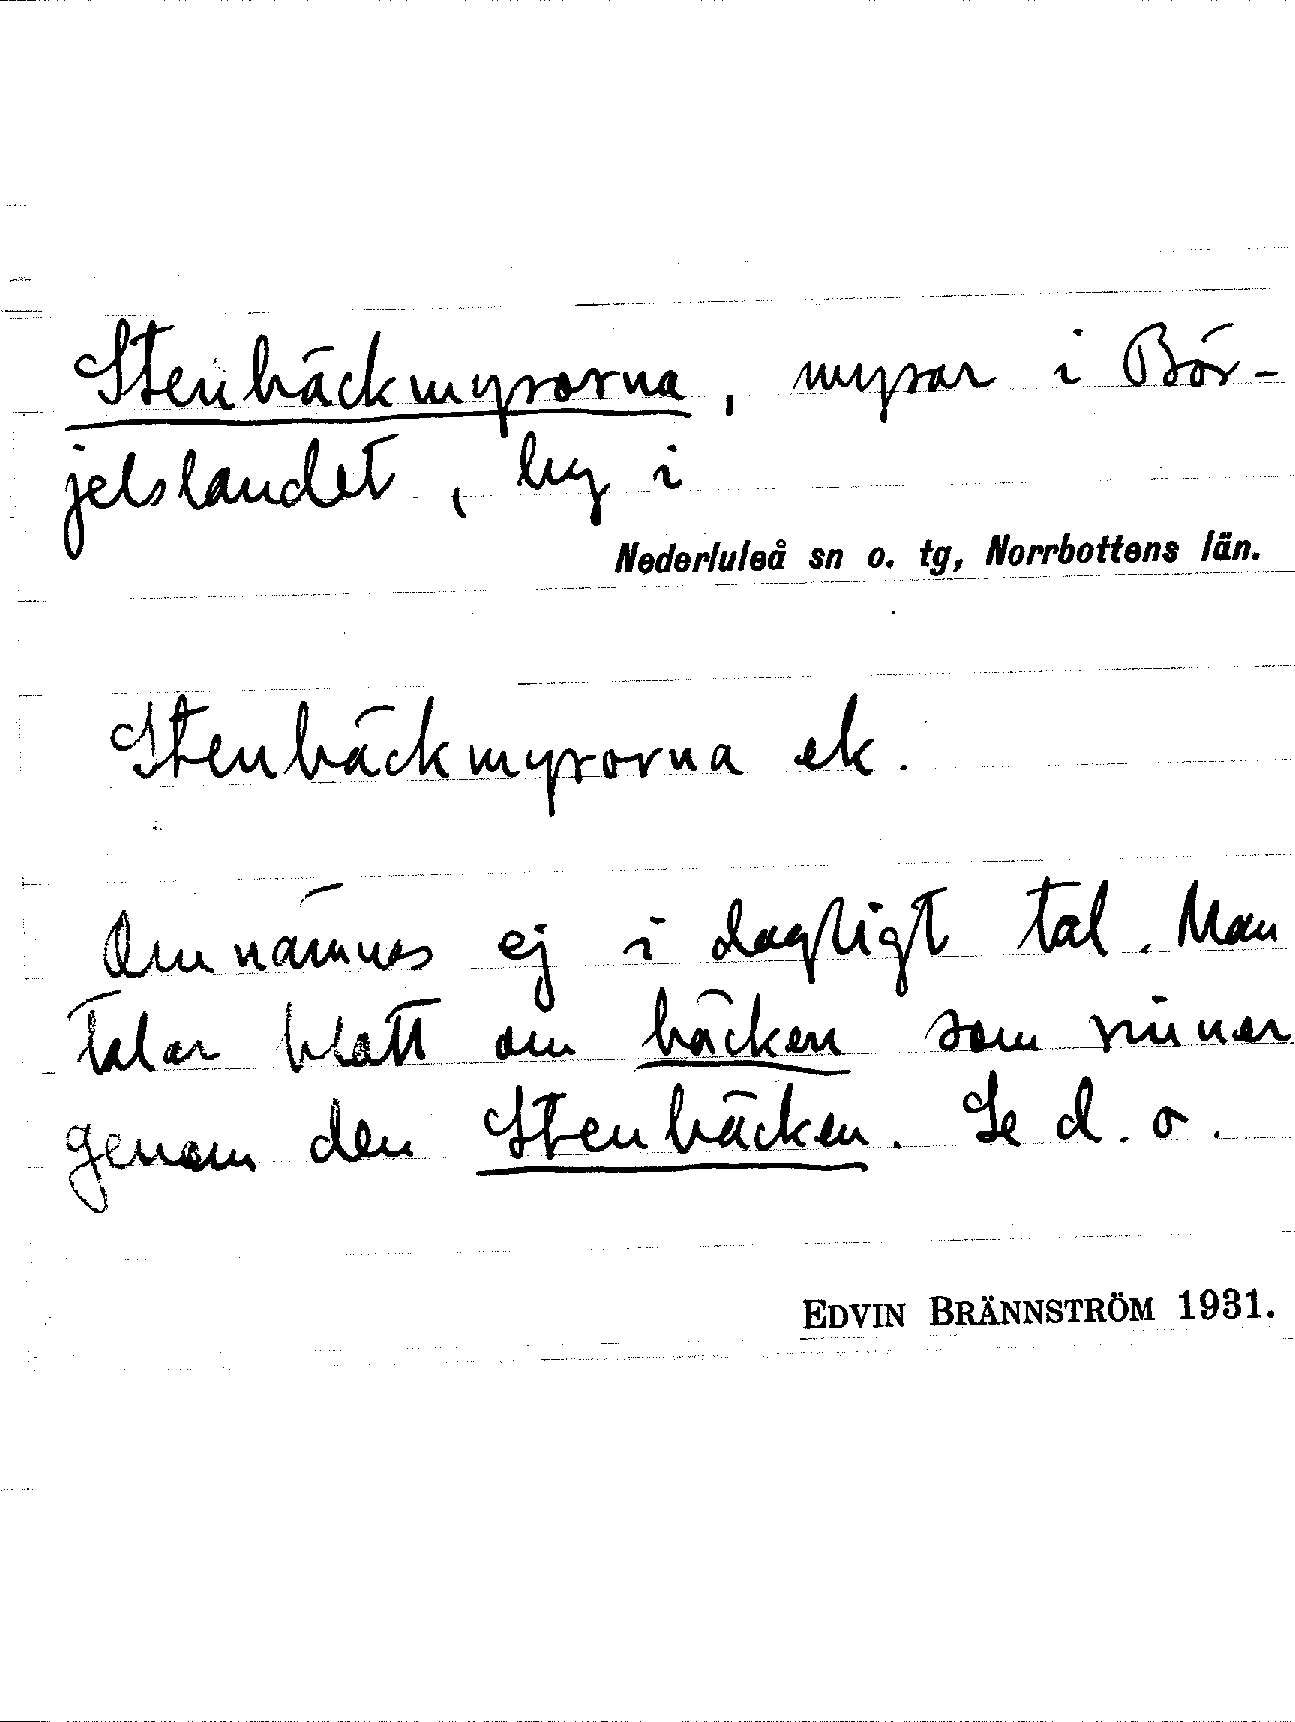 Stenbäckmyrorna, myrar i Bör-
jelslandet, by i
Nederluleå sn o. tg, Norrbottens län.
Stenbäckmyrorna ek.
Omnämnes ej i dagligt tal. Man
talar blott om bäcken som rinner
genom den Stenbäcken. Se d. o.
EDVIN BRÄNNSTRÖM 1931.